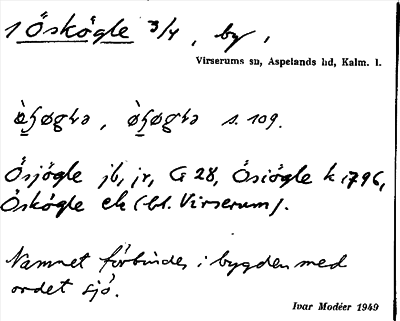 1 Öskögle 3/4, by,
Virserums sn, Aspelands hd, Kalm. l.
s. 109.
Ösjögle jb, jr, G 28, Ösiögle k 1796,
Öskögle ek (bl. Virserum).
Namnet förbindes i bygden med
ordet sjö.
Ivar Modéer 1949